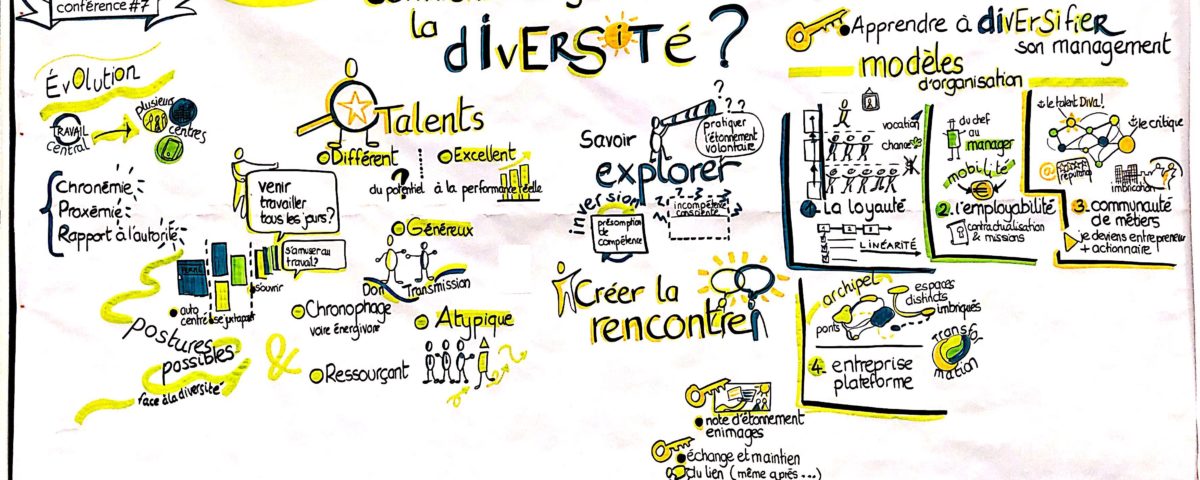 conférence #7
la diVERSiTé ?
ÉvOlution
TRAVAIL
central
plusieurs
centres
Chronémie
Proxémie
Rapport à l'autorité
venir
travailler
tous les jours?
s'amuser au
travail?
auto
centré
se juxtaposer
s'ouvrir
postures
possibles
face à la diversité
&
Talents
Différent
Excellent
du potentiel à la performance réelle
?
Généreux
Don
Transmission
Chronophage
voire énergivore
Atypique
Ressourçant
Savoir
explorer
? ? ?
pratiquer
l'étonnement
volontaire
inversion
présomption
de
compétence
incompétence
consciente
Créer la
rencontre
note d'étonnement
en images
échange et maintien
du lien (même après...)
Apprendre à diVERSifiER
son management
modèles
d'organisation
vocation
chance
1. La loyauté
LINÉARITÉ
du chef
au
manager
mobilité
€
2. l'employabilité
contractualisation
& missions
le talent Diva!
le critique
@
réputation
implication
3. communauté
de métiers
je deviens entrepreneur
+ actionnaire
archipel
espaces
districts
imbriqués
ponts
TRANSFOR
MATION
4. entreprise
plateforme